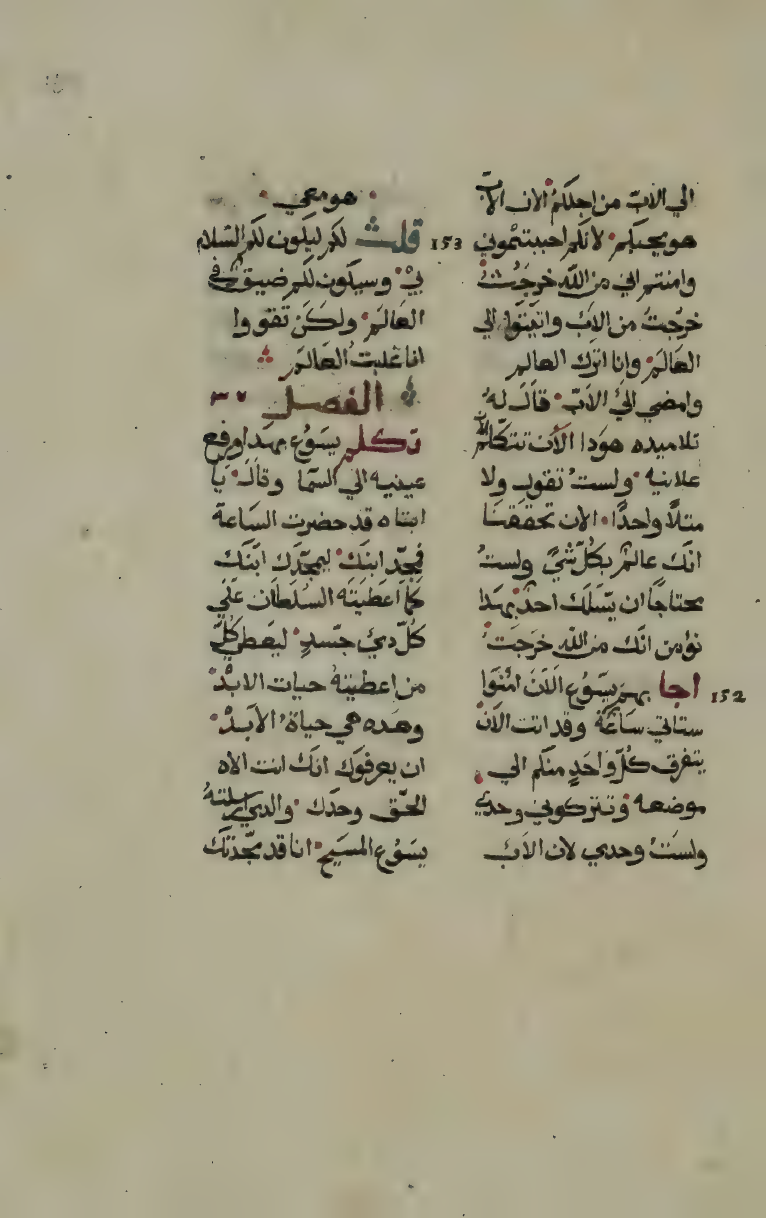 الي الاب من اجلكم الان الاب
هو يحبكم لانكم احببتموني
وامنتم اني من الله خرجت
خرجت من الاب واتيت الي
العالم وانا اترك العالم
وامضي الي الاب قال له
تلاميده هودا الان تتكلم
علانيه ولست تقول ولا
متلا واحدا الان تحققنا
انك عالم بكل شي ولست
محتاجا ان يسلك احد بهدا
نؤمن انك من الله خرجت
152 اجا بهم يسوع الان امنوا
ستاتي ساعة وقد اتت الان
يتفرق كل واحد منكم الي
موضعه وتتركوني وحدي
ولست وحدي لان الاب
هو معي
153 قلت لكم ليكون لكم السلام
بي وسيكون لكم ضيق في
العالم ولكن تقووا
انا غلبت العالم
الفصل ٣٧
تكلم يسوع بهدا ورفع
عينيه الي السما وقال يا
ابتاه قد حضرت الساعة
فمجد ابنك ليمجدك ابنك
كما اعطيته السلطان علي
كل دي جسد ليعطي كل
من اعطيته حيات الابد
وهده هي حياة الابد
ان يعرفوك انك انت الاه
الحق وحدك والدي ارسلته
يسوع المسيح انا قد مجدتك